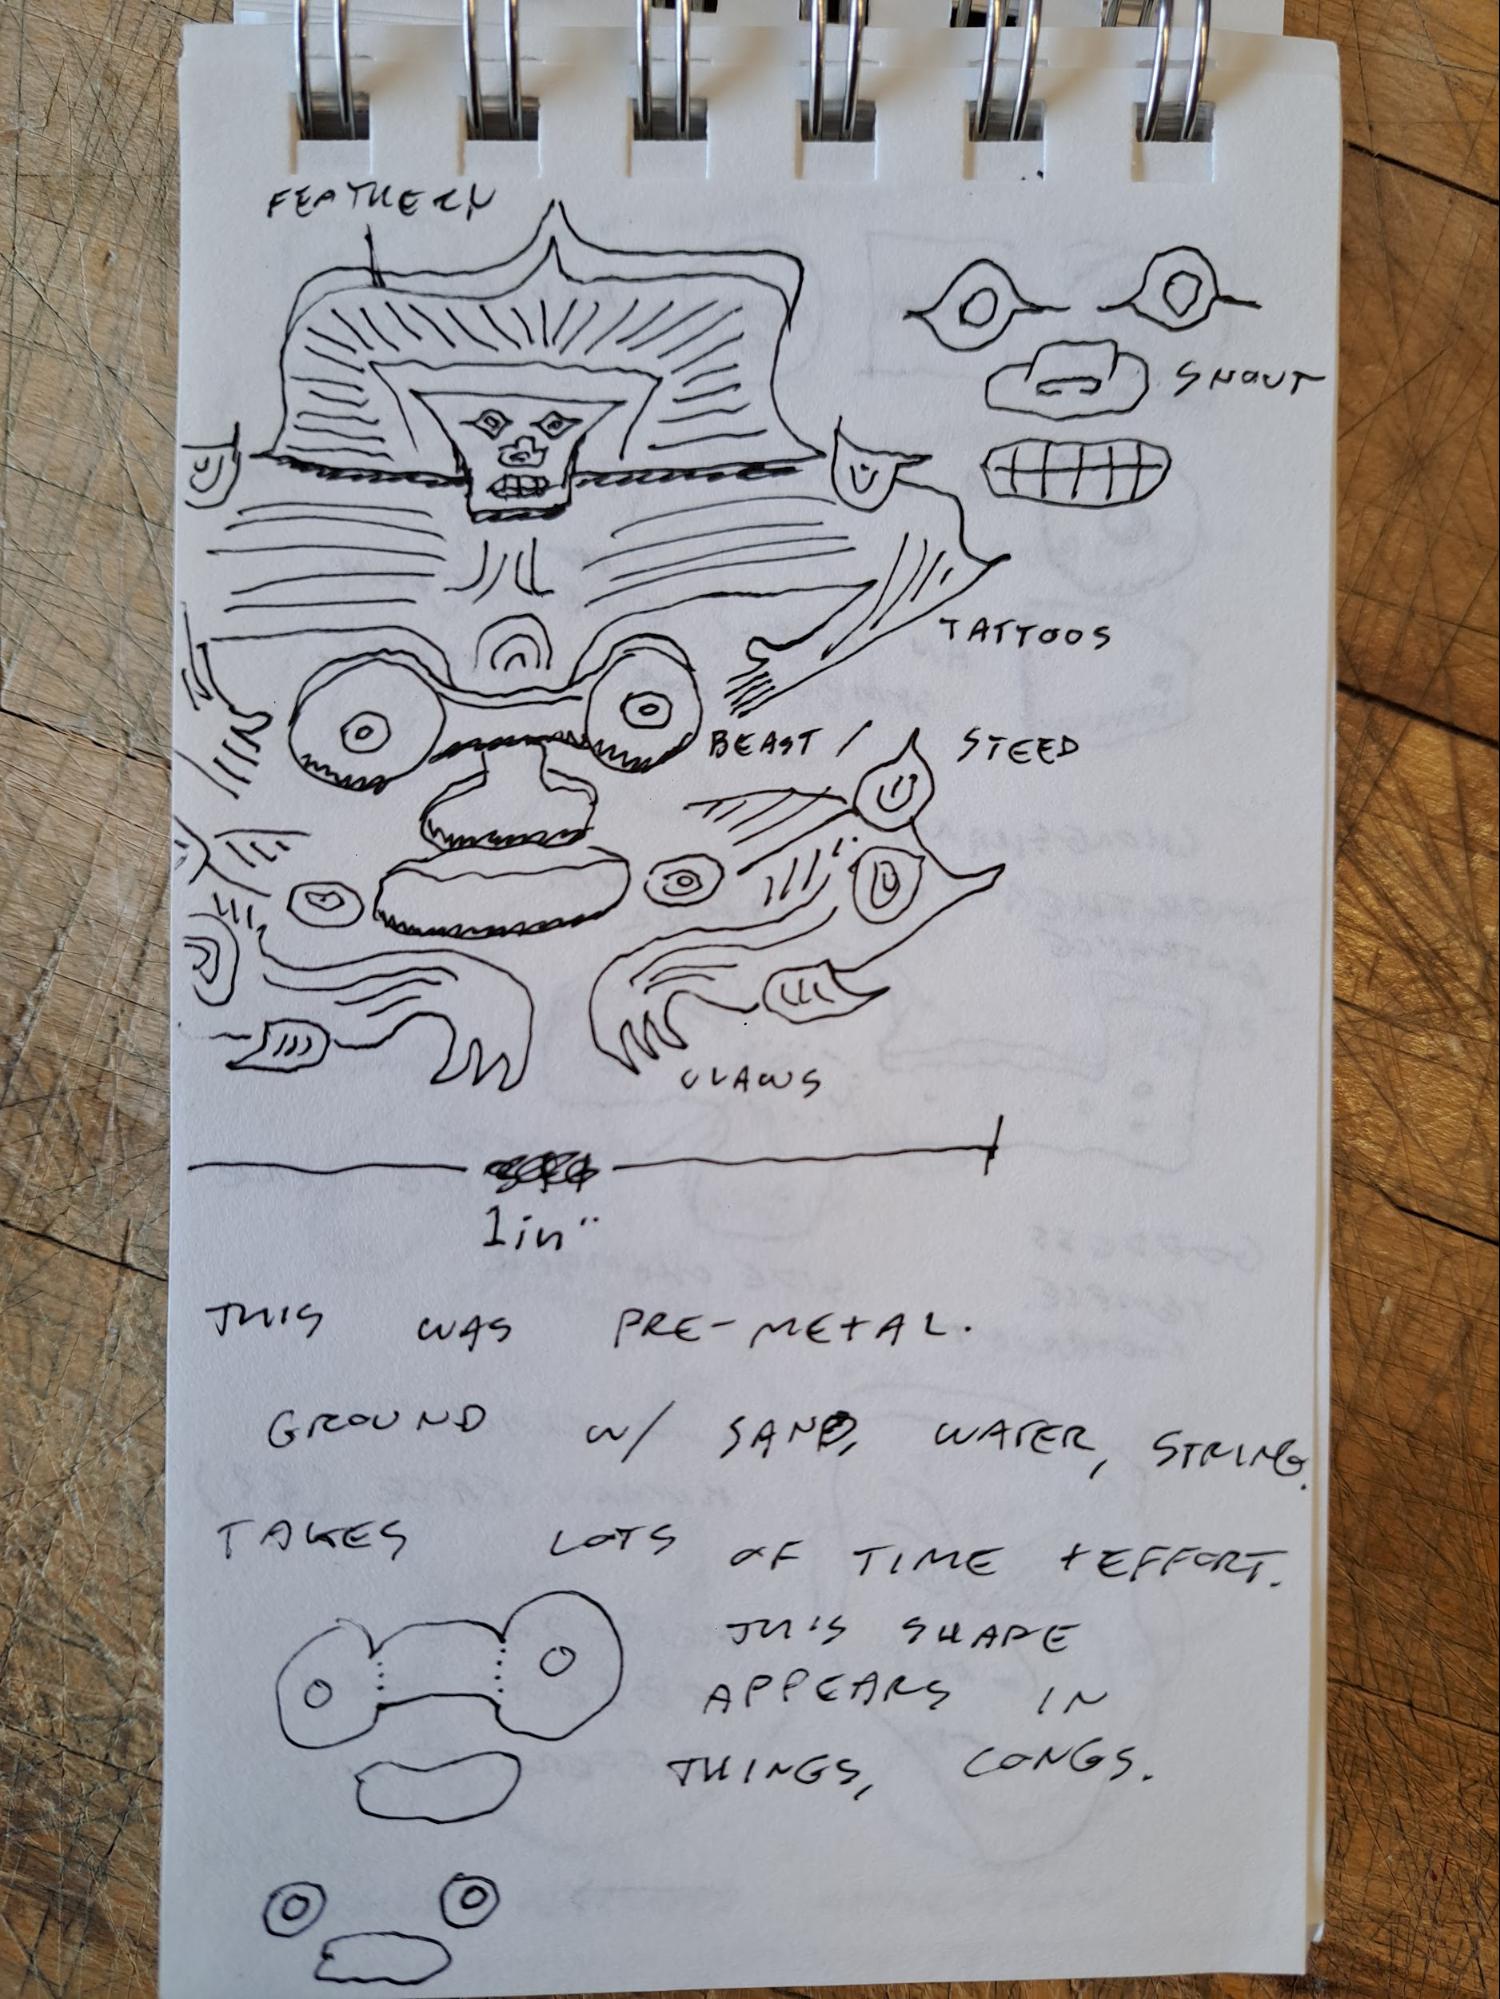 FEATHERY
SNOUT
TATTOOS
BEAST / STEED
CLAWS
1in"
THIS WAS PRE-METAL.
GROUND W/ SAND, WATER, STRING.
TAKES LOTS OF TIME + EFFORT.
THIS SHAPE
APPEARS IN
THINGS, CONGS.